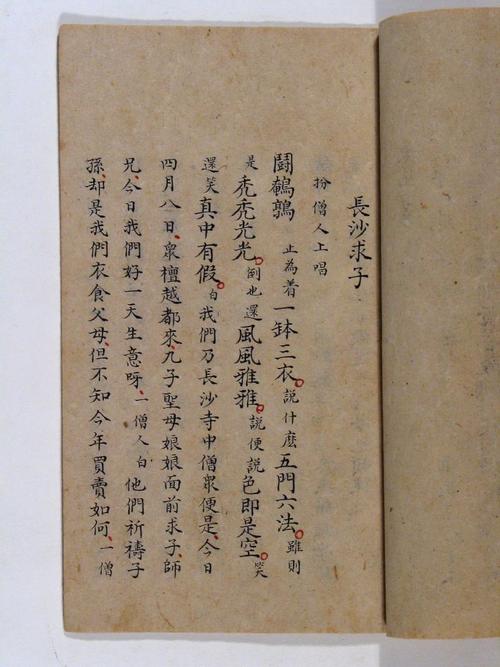 長沙求子
扮僧人上唱
鬪鵪鶉 止為着一鉢三衣。說什麼五門六法。雖則
是禿禿光光。倒也還風風雅雅。說便說色即是空。笑
還笑真中有假。白我們乃長沙寺中僧眾便是、今日
四月八日、眾檀越都來九子聖母娘娘面前求子、師
兄、今日我們好一天生意呀、一僧人白他們祈禱子
孫、却是我們衣食父母、但不知今年買賣如何、一僧